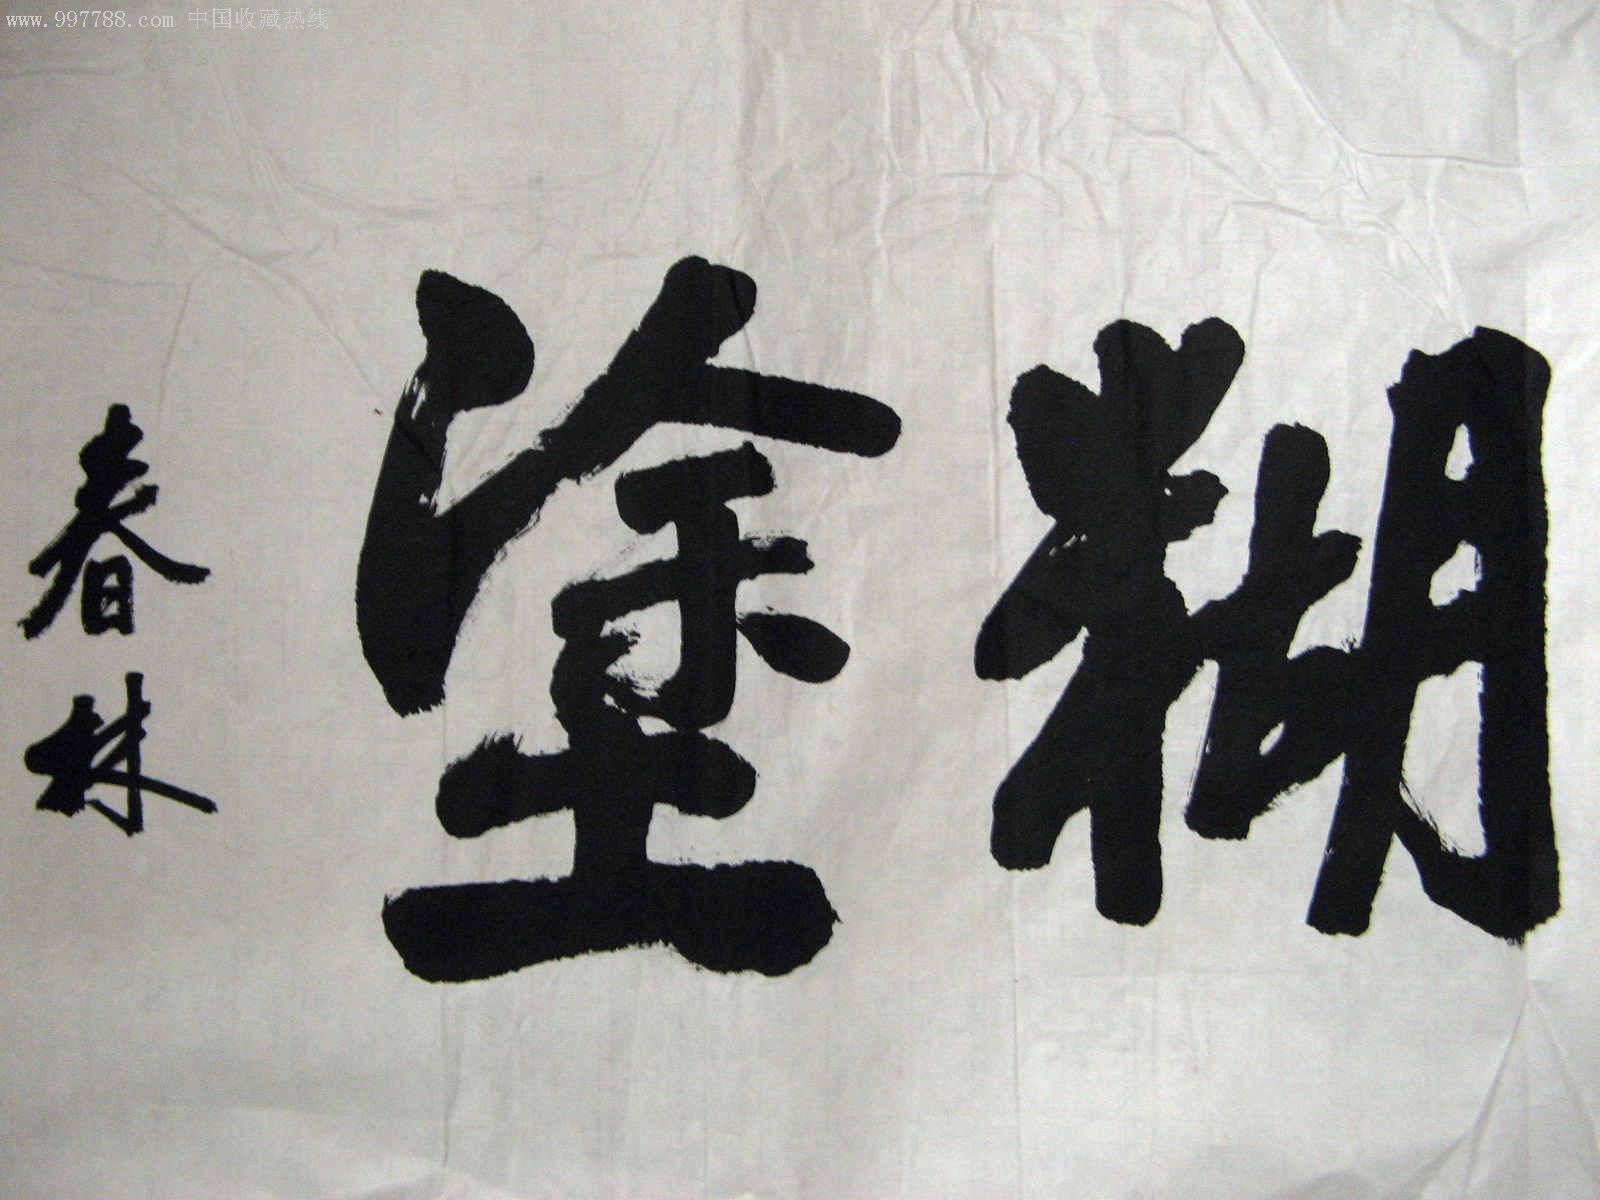 www.997788.com 中国收藏热线
糊塗
春林